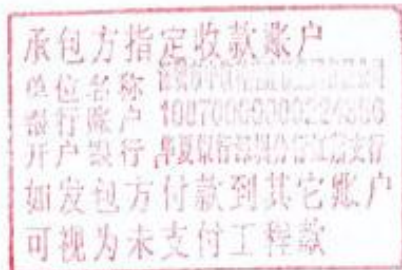 承包方指定收款账户
单位名称
银行账户
开户银行 华夏银行深圳分行
支行
如发包方付款到其它账户
可视为未支付工程款